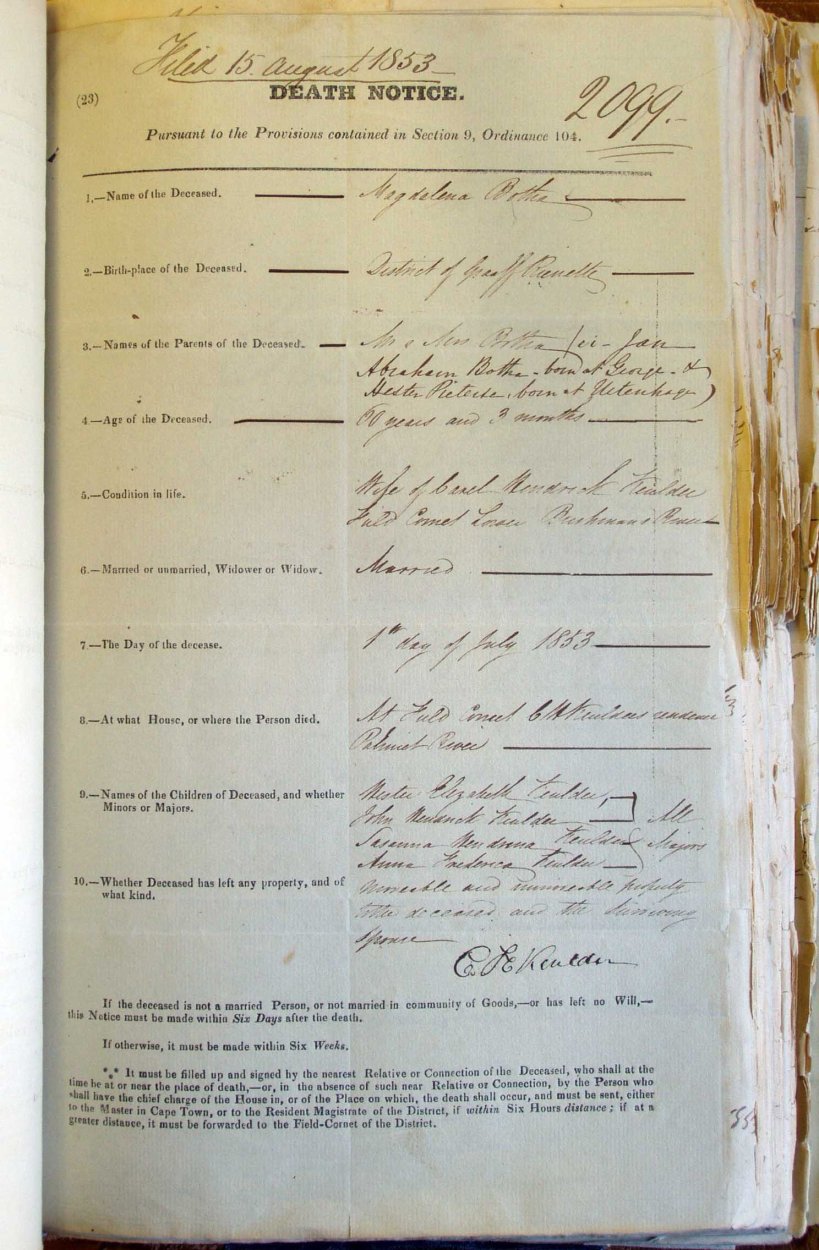 Filed 15 August 1853
(23)
DEATH NOTICE.
2099.-
Pursuant to the Provisions contained in Section 9, Ordinance 104.
1,—Name of the Deceased. Magdalena Botha
2.—Birth-place of the Deceased. District of Graaff Reinette
3.—Names of the Parents of the Deceased. Mr & Mrs Botha (ei- Jan
Abraham Botha - born at George - &
Hester Pieterse, born at Uitenhage)
4—Age of the Deceased. 60 years and 3 months
5.—Condition in life. Wife of Carel Hendrick Keulder
Feild Cornet Lower Bushmans River
6.—Married or unmarried, Widower or Widow. Married
7.—The Day of the decease. 1st day of July 1853
8.—At what House, or where the Person died. At Feild Cornet C H Keulders
Palmiet River
9.—Names of the Children of Deceased, and whether Hester Elizabeth Keulder,
Minors or Majors. John Hendrick Keulder All
Susanna Hendrina Keulder Majors
Anna Frederica Keulder
10.—Whether Deceased has left any property, and of Moveable and immoveable
what kind. deceased and the surviving
spouse
C H Keulder
If the deceased is not a married Person, or not married in community of Goods,—or has left no Will,—
this Notice must be made within Six Days after the death.
If otherwise, it must be made within Six Weeks.
*** It must be filled up and signed by the nearest Relative or Connection of the Deceased, who shall at the
time be at or near the place of death,—or, in the absence of such near Relative or Connection, by the Person who
shall have the chief charge of the House in, or of the Place on which, the death shall occur, and must be sent, either
to the Master in Cape Town, or to the Resident Magistrate of the District, if within Six Hours distance; if at a
greater distance, it must be forwarded to the Field-Cornet of the District.